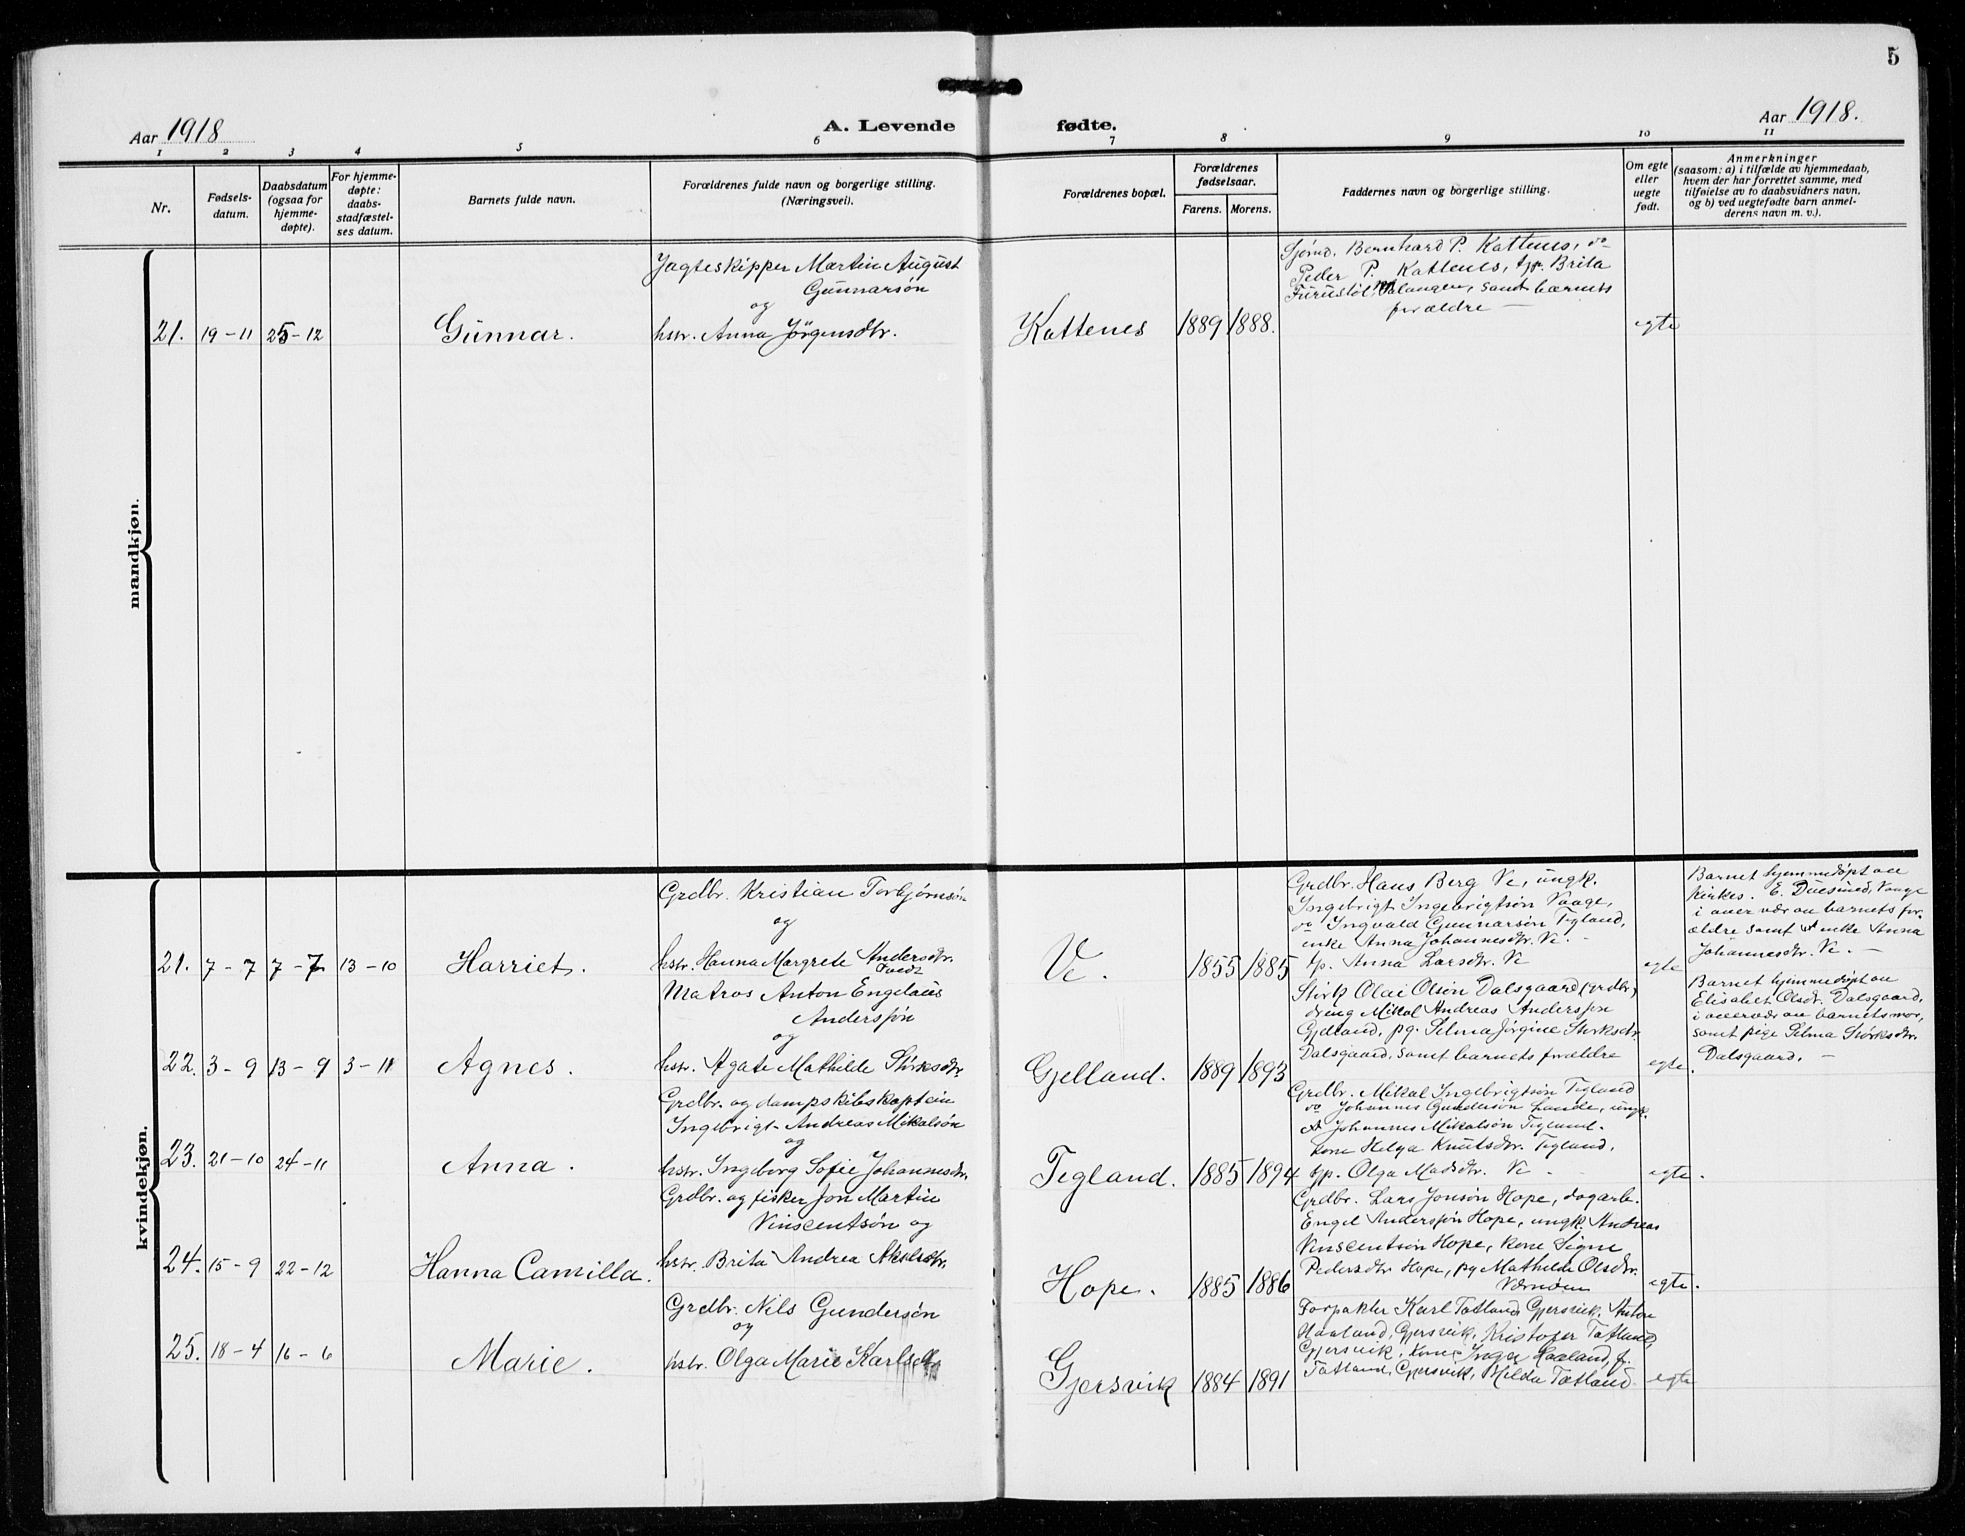 5
Aar 1918
A. Levende fødte.
Aar 1918.
1 2 3 4 5 6 7 8 9 10 11
Nr.
Fødsels-
datum.
Daabsdatum
(ogsaa for
hjemme-
døpte).
For hjemme-
døpte:
daabs-
stadfæstel-
ses datum.
Barnets fulde navn.
Forældrenes fulde navn og borgerlige stilling.
(Næringsvei).
Forældrenes bopæl.
Forældrenes
fødselsaar.
Farens. Morens.
Faddernes navn og borgerlige stilling.
Om egte
eller
uegte
født.
Anmerkninger
(saasom: a) i tilfælde av hjemmedaab,
hvem der har forrettet samme, med
tilføielse av to daabsvidners navn,
og b) ved uegtefødte barn anmel-
derens navn m. v.).
mandkjøn.
21. 19-11 25-12 Gunnar.
Jagteskipper Martin August
Gunnarsøn
og
hstr. Anna Jørgensdtr.
Kattenes 1889 1888.
Sjømd. Bernhard P. Kattenes,
Peder P. Kattenes, tjp. Brita
Furustøl, samt barnets
forældre —
egte
kvindekjøn.
21. 7-7 7-7 13-10 Harriet.
Grdbr. Kristian Torbjørnsøn
og
hstr. Hanna Margrete Andersdtr.
Tvedt
Ve. 1855 1885
Grdbr. Hans Berg Ve, ungk.
Ingebrigt Ingebrigtsøn Vaage,
Ingvald Gunnarsøn Tegland,
enke Anna Johannesdtr. Ve. -
tjp. Anna Larsdtr. Ve
egte
Barnet hjemmedøpt av
kirkes. E. Vaage
i overvær av barnets for-
ældre samt enke Anna
Johannesdtr. Ve. —
22. 3-9 13-9 3-11 Agnes.
Matros Anton Engelaus
Andersøn
og
hstr. Agate Mathilde Størksdtr.
Gjelland. 1889 1893
Størk Olai Olsøn Dalsgaard (grdbr)
dreng Mikal Andreas Andersøn
Gjelland, pg. Selma Jørgine Størksdtr.
Dalsgaard, samt barnets forældre
egte.
Barnet hjemmedøpt av
Elisabet Olsdtr. Dalsgaard,
i overvær av barnets mor,
samt pige Selma Størksdtr.
Dalsgaard. —
23. 21-10 24-11 Anna.
Grdbr. og dampskibskaptein
Ingebrigt Andreas Mikalsøn
og
hstr. Ingeborg Sofie Johannesdtr.
Tegland. 1885 1894
Grdbr. Mikal Ingebrigtsøn Tegland
Johannes Gundersøn Lande, ungk.
Johannes Mikalsøn Tegland.
kone Helga Knutsdtr. Tegland,
tjp. Olga Madsdtr. Ve -
egte.
24. 15-9 22-12 Hanna Camilla.
Grdbr. og fisker Jon Martin
Vinscentsøn og
hstr. Brita Andrea Akselsdtr.
Hope. 1885 1886
Grdbr. Lars Jonsøn Hope, dagarb.
Engel Andersøn Hope, ungk. Andreas
Vinscentsøn Hope, kone Signe
Pedersdtr Hope, pg Mathilde Olsdtr.
Værnøen
egte.
25. 18-4 16-6 Marie.
Grdbr. Nils Gundersøn
og
hstr. Olga Marie
Gjersvik 1884 1891
Forpakter Karl Tatland Gjersvik, Anton
Haaland, Gjersvik, Kristofer Tatland,
Gjersvik, kone Inger Haaland, f.
Tatland, Gjersvik, Milda Tatland
egte